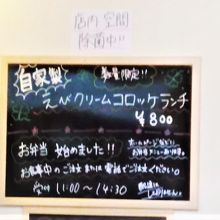 店内 空間
除菌中!!
自家製
数量限定!!
えびクリームコロッケランチ
¥800
お弁当 始めました!!
お食事中のご注文 または 電話でご注文ください。
受付 11:00〜14:30